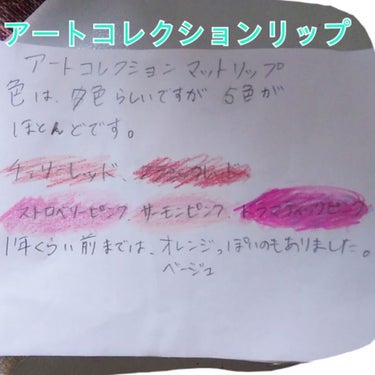 アートコレクションリップ
アートコレクション マットリップ
色は、夕色らしいですが 5色が
ほとんどです。
チェリーレッド、クラシックレッド
ストロベリーピンク、サーモンピンク、ドラマティックピンク
1年くらい前までは、オレンジっぽいのもありました。
ベージュ